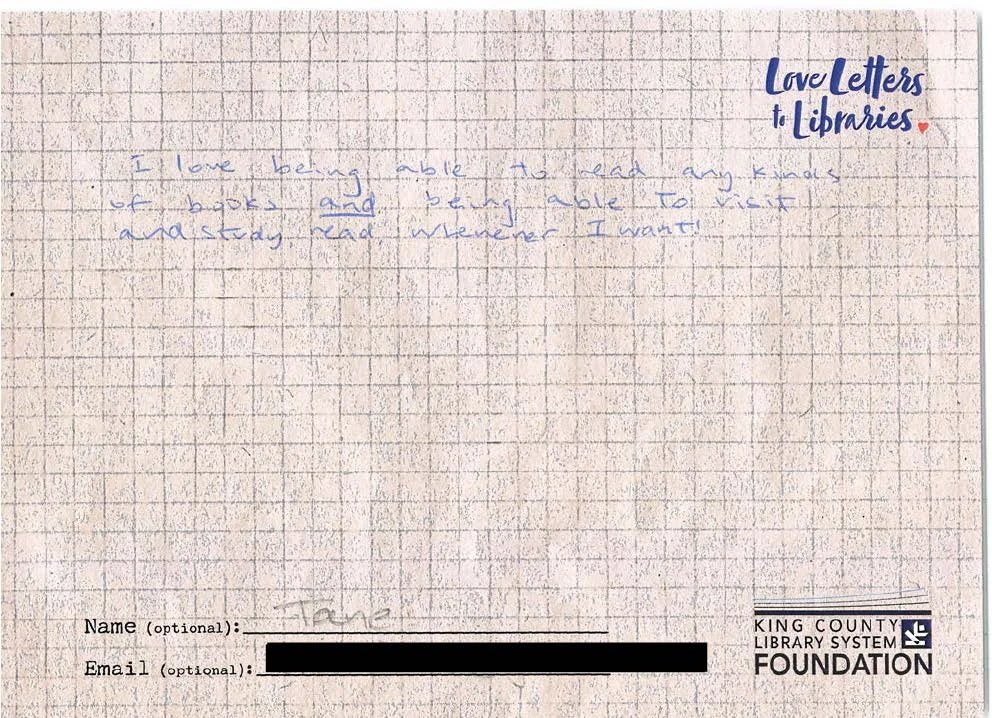 Love Letters
to Libraries
I love being able to read any kinds
of books and being able to visit
and study read whenever I want!
Name (optional): Jane
Email (optional):
KING COUNTY
LIBRARY SYSTEM
FOUNDATION